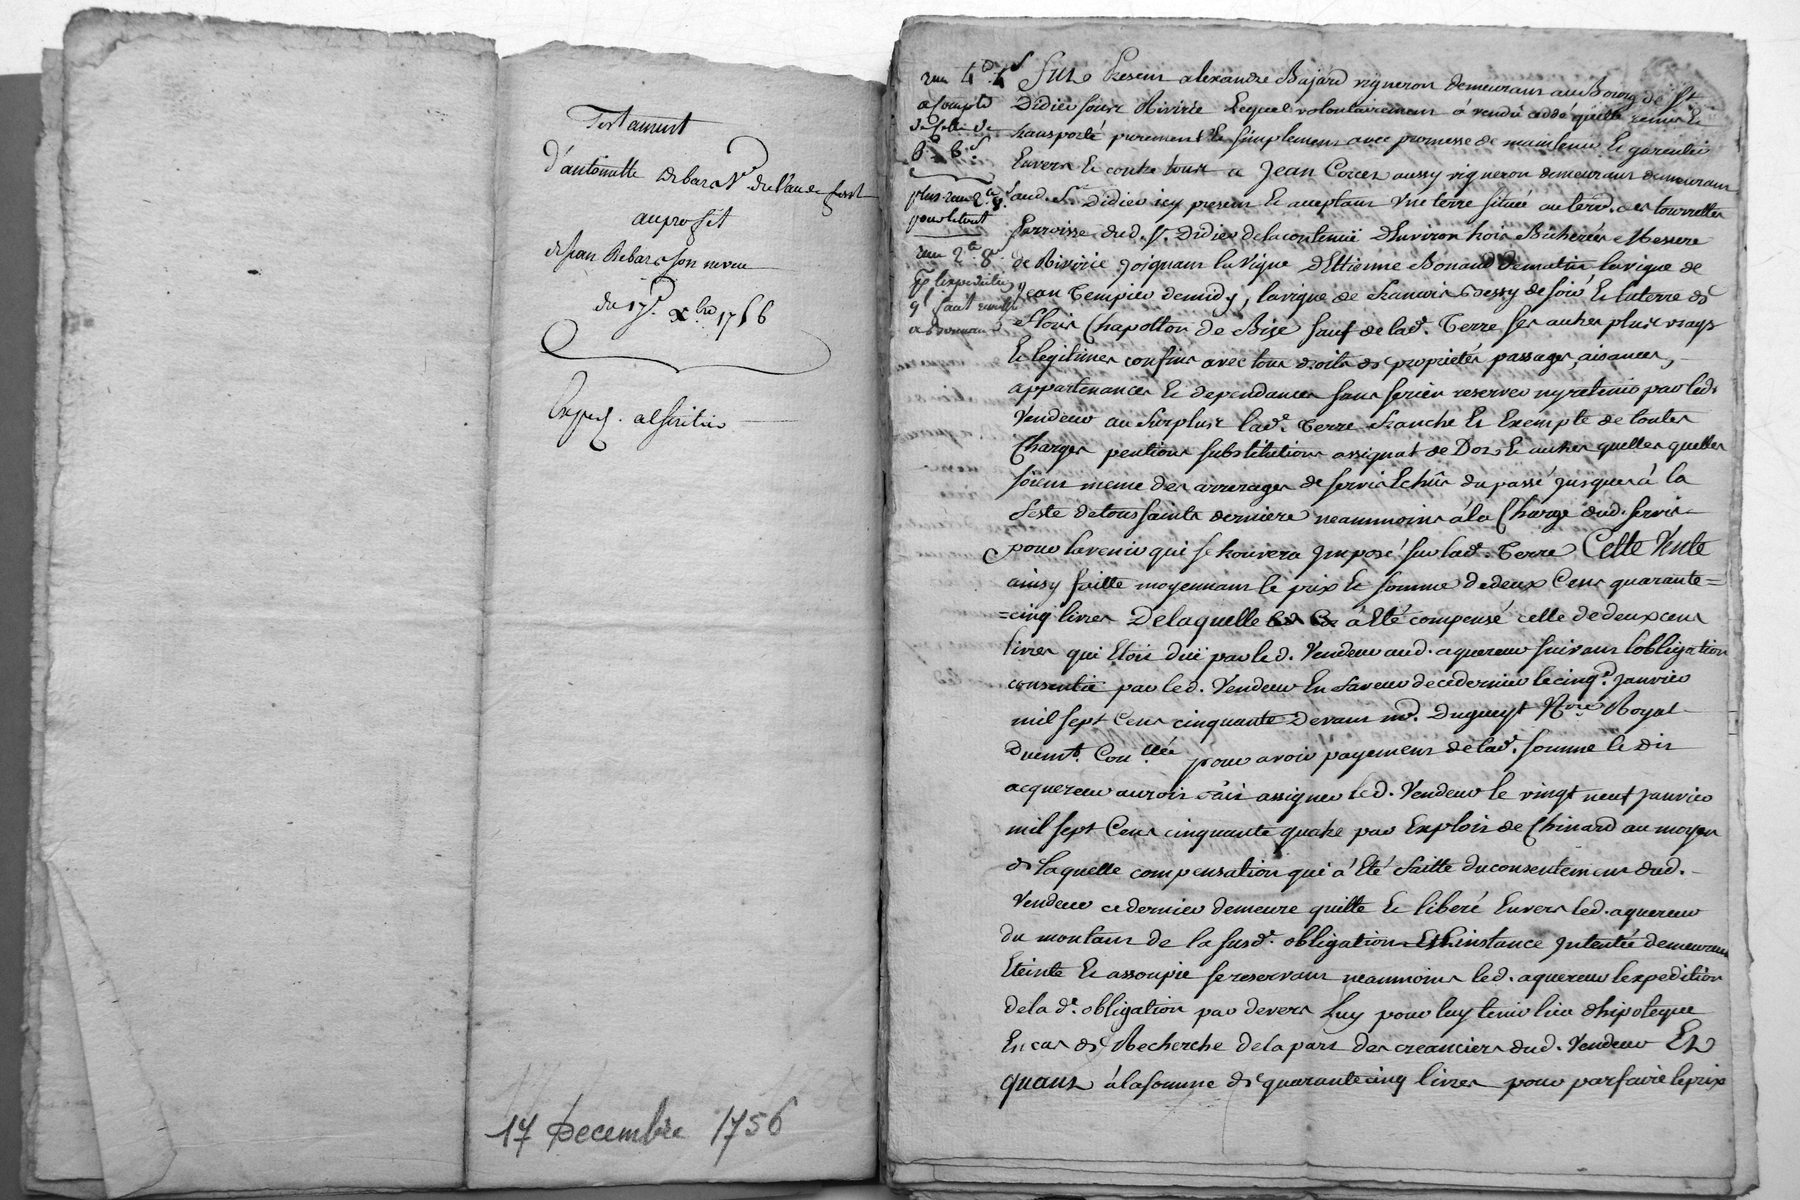 Testament
d'antoinette Rebar Ve de
au profit
de jean Rebar son neveu
du 17e. Xbre 1756
Exped.
17 Decembre 1756
reçu 4d. 4s
a compte
de celle de
8. 6s
plus reçu 2
pour le tout
reçu 2. 8
Fut Present alexandre Bajard vigneron demeurant au Bourg de St
Didier sous Riviríe Lequel volontairement á vendû ceddé quitté remis Et
transporté purement Et simplement avec promesse de maintenir Et garentir
Envers Et contre tous a Jean Corcet aussy vigneron demeurant demeurant
aud. St Didier icy present Et acceptant Une terre située au terrd. des tourrettes
Parroisse dud. St. Didier de la contenuë D'Environ trois Bicherées Mesure
de Riviríe Joignant la Vigne D'Ettienne Bonand de matin la vigne de
Jean Tempier de midy, la vigne de francois de soir Et la terre de
floris Chapotton de Bize sauf de lad. Terre ses autres plus vrays
Et legitimes confins avec tous droits de proprietés passages, aisances,
appartenances Et dependances sans se rien reserver ny retenir par led.
Vendeur au Surplus lad. Terre franche Et Exempte de toutes
Charges pentions substitutions assignat de Dot, Et autres quelles quelles
soient meme des arrerages de servis Echûs du passé jusques á la
feste de toussaints derniere neammoins á la Charge dud. servis
pour l'avenir qui se trouvera Imposé sur lad. Terre Cette Vente
ainsy faitte moyennant le prix Et somme de deux Cent quarante=
=cinq livres De laquelle á Eté compensé celle de deux cent
livres qui Etoit duë par led. Vendeur aud. aquereur suivant l'obligation
consentie par led. Vendeur En faveur de ce dernier le cinqe. janvier
mil sept Cent cinquante Devant me. Dugueyt Nore Royal
Duemt. Conllée pour avoir payement de lad. somme le dit
acquereur auroit fait assigner led. Vendeur le vingt neuf janvier
mil sept Cent cinquante quatre par Exploit de Chinard au moyen
de laquelle compensation qui á Eté faitte du consentement dud.
Vendeur ce dernier demeure quitte Et liberé Envers led. aquereur
du montant de la susde. obligation Et l'instance Intentée demeurant
Eteinte Et assoupie se reservant neammoins led. aquereur l'expedition
de la de. obligation par devers Luy pour luy tenir lieu d'hipoteque
En cas de Recherche de la part des creanciers dud. Vendeur Et
quant á la somme de quarante cinq livres pour parfaire le prix